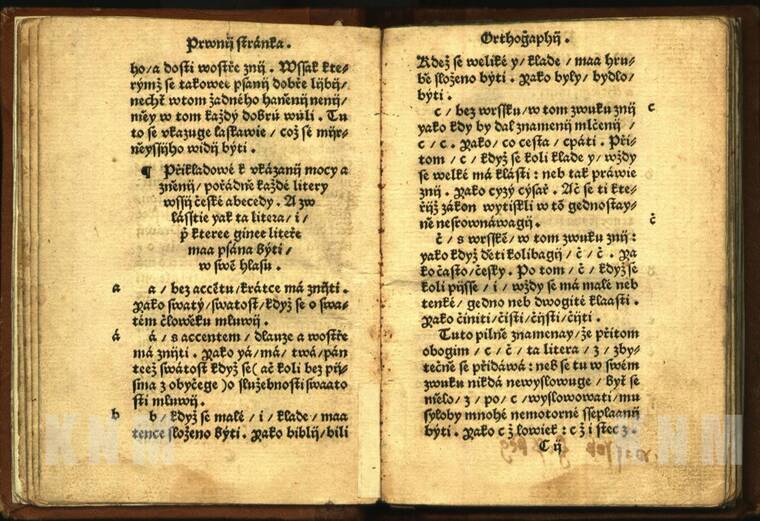 Prwnij stránka.
ho/a dosti wostře znij. Wssak kte-
rýmž se takowee psanij dobře lijbij/
nechť w tom žádného haněnij nenij/
něy w tom každý dobrú wuoli. Tu
to se vkazuge laskawie/ což se mijr-
něyssijho widij býti.
¶ Přikladowé k vkázanij mocy a
zněnij/ pořádně každé litery
wssij české abecedy. A zw
lásstie yak ta litera/ i/
p̊ kteree ginee liteře
maa psána býti/
w swé hlasu.
a a/ bez accētu/ krátce má znijti.
Yako swatý/ swatost/ když se o swa-
tém člowěku mluwij.
á á/ s accentem/ dlauze a wostře
má znijti. Yako yá/ má/ twá/ pán
teež swátost když se( ač koli bez pij-
sma z obyčege )o služebnosti swaato
sti mluwij.
b b/ když se malé/ i/ klade/ maa
tence složeno býti. Yako biblij/ bili
Orthogaphij.
Kdež se weliké y/ klade/ maa hru-
bě složeno býti. Yako byly/ bydlo/
býti.
c/ bez wrssku/ w tom zwuku znij c
yako kdy by dal znamenij mlčenij/
c/ c. Yako/ co cesta/ cpáti. Při-
tom/ c/ když se koli klade y/ wždy
se welké má klásti: neb tak práwie
znij. Yako cyzý cýsař. Ač se ti kte-
řijž zákon wytiskli w tō gednostay-
ně nesrownáwagij.
č/ s wrsskē/ w tom zwuku znij: č
yako když děti kolibagij/ č/ č. Ya
ko často/ česky. Po tom/ č/ když se
koli pijsse/ i/ wždy se má malé neb
tenké/ gedno neb dwogité klaasti.
Yako činiti/ čisti/ čijsti/ čijti.
Tuto pilně znamenay/ že přitom
obogim/ c/ č/ ta litera/ z/ zby-
tečně se přidáwá: neb se tu w swém
zwuku nikdá newyslowuge/ Byť se
mělo/ z/ po/ c/ wyslowowati/ mu
syloby mnohé nemotorné sseplaanij
býti. Yako c ž lowiek: c ž i stec z.
C ij
KNM
KNM